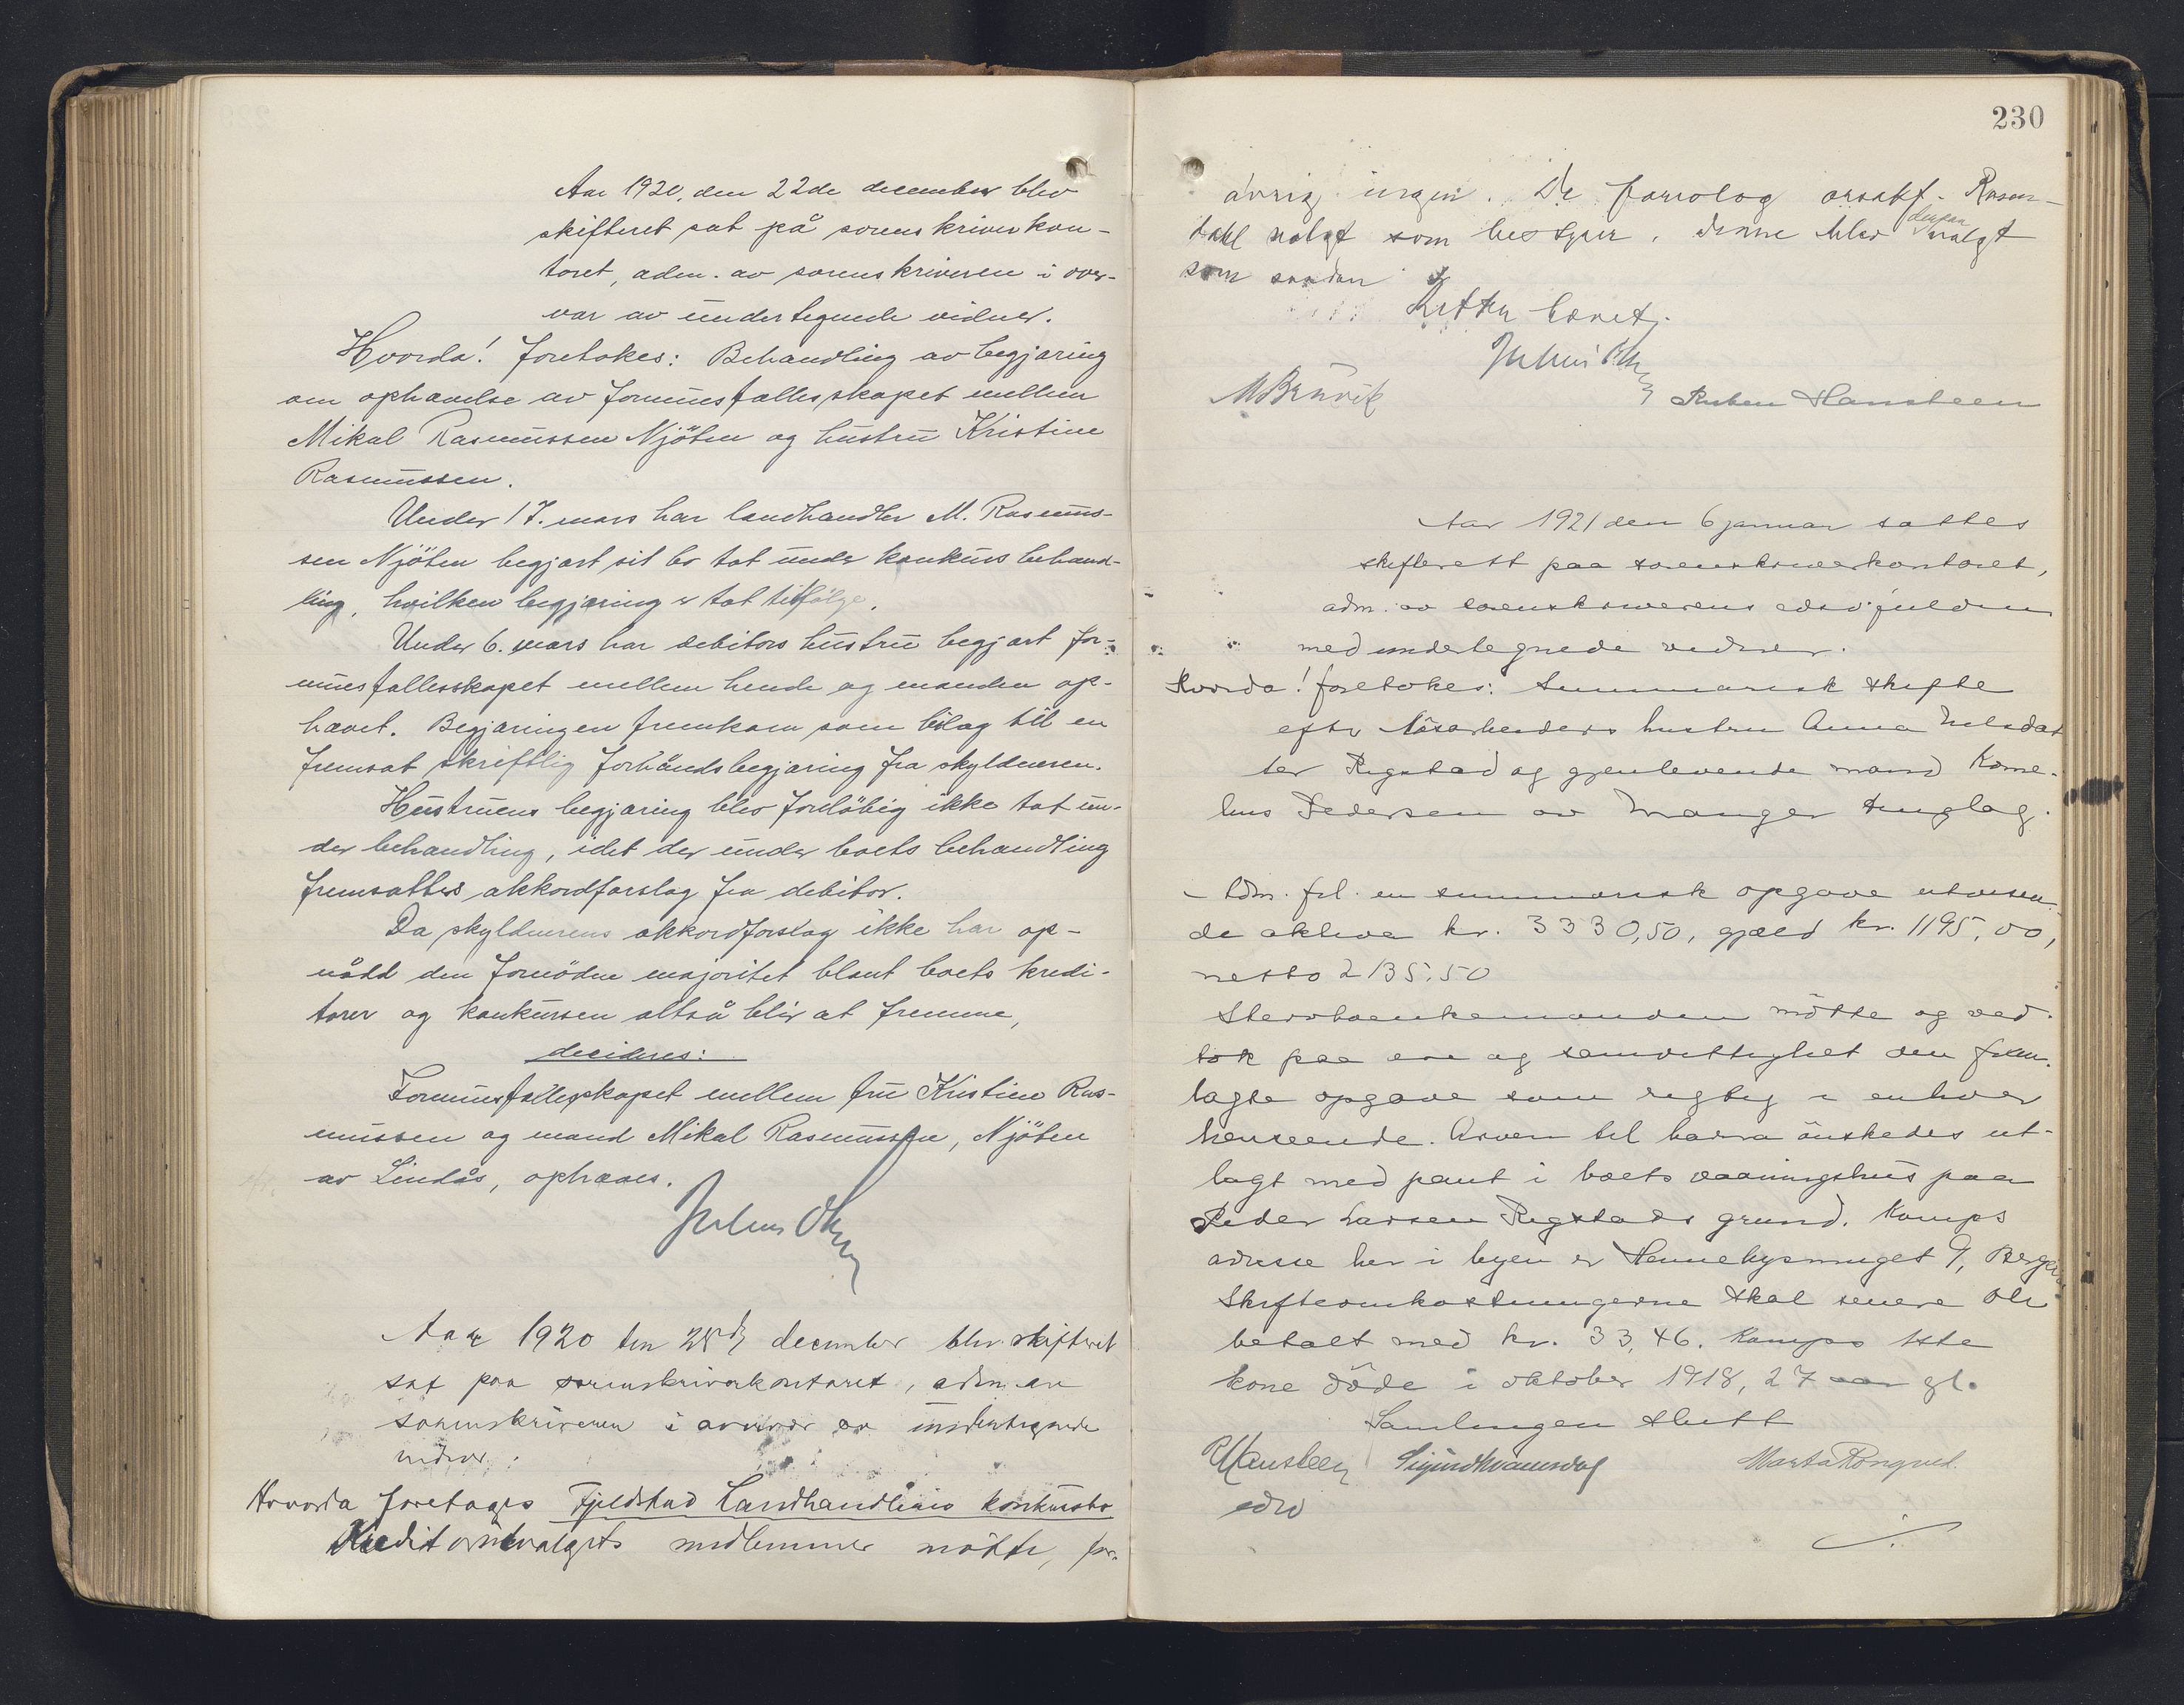 Aar 1920, den 22de december blev
skifteret sat på sorenskriverkon-
toret, adm. av sorenskriveren i over-
vær av undertegnede vidner.
Hvorda! foretokes: Behandling av begjæring
om ophævelse av formuesfællesskapet mellem
Mikal Rasmussen Njöten og hustru Kristine
Rasmussen.
Under 17. mars har landhandler M. Rasmus-
sen Njöten begjært sit bo tat under konkurs behand-
ling, hvilken begjæring er tat tilfölge.
Under 6. mars har debitors hustru begjært for-
muesfællesskapet mellem hende og manden op-
hævet. Begjæringen fremkom som bilag til en
fremsat skriftlig forhåndsbegjæring fra skyldneren.
Hustruens begjæring blev foreløbig ikke tat un-
der behandling, idet der under boets behandling
fremsattes akkordforslag fra debitor.
Da skyldnerens akkordforslag ikke har op-
nådd den fornödne majoritet blant boets kredi-
torer og konkursen altså blir at fremme,
decideres:
Formuesfællesskapet mellem fru Kristine Ras-
mussen og mand Mikal Rasmussen, Njöten
av Lindås, ophæves.
Aar 1920 den 28de december blev skifteret
sat paa sorenskriverkontoret, adm. av
sorenskriveren i overvær av undertegnede
vidner:
Hvorda foretages Fjeldstad Landhandleris konkursbo
Kreditorutvalgets medlemmer mötte, for-
230
øvrig ingen. De foreslog orsakf. Rosen-
dahl valgt som bestyrer, denne blev derpaa valgt
som saadan
Retten hævet.
M Brüvik
Ruben Hansteen
Aar 1921 den 6 januar sattes
skifterett paa sorenskriverkontoret,
adm. av sorenskriverens edsv. fuldm.
med undertegnede vidner.
Hvorda! foretokes: Summarisk skifte
efter løsarbeiders hustru Anna Nilsdat
ter Rigstad og gjenlevende mand Korne-
lius Pedersen av Manger tinglag.
- Adm. frl. en summarisk opgave utvisen-
de aktiva kr. 3330,50, gjæld kr. 1195,00,
netto 2135,50
Stervboenkemanden mötte og ved-
tok paa ære og samvittighet den frem-
lagte opgave som rigtig i enhver
henseende. Arven til barna önskedes ut-
lagt med pant i boets vaaningshus paa
Peder Larsen Rigstads grund. Komps
adresse her i byen er Hennebysmuget 9, Bergen
Skifteomkostningerne skal senere bli
betalt med kr. 33,46. Komps 1ste
kone döde i oktober 1918, 27 aar gl.
Samlingen slutt
R Hansteen Sigurd Kvamsdal
edsv